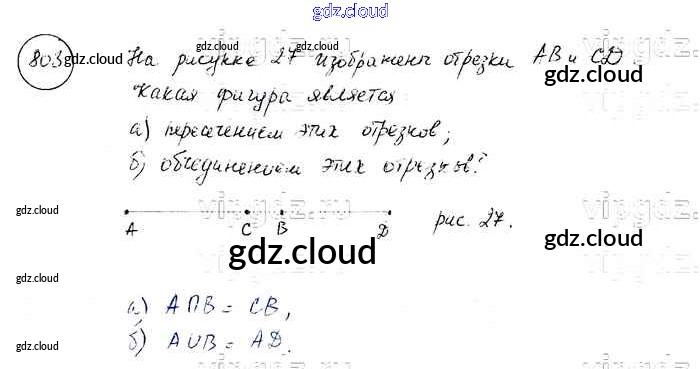 gdz.cloud
803 На рисунке 27 изображены отрезки AB и CD.
Какая фигура является
а) пересечением этих отрезков;
б) объединением этих отрезков?
A C B D рис. 27.
а) A∩B = CB,
б) A∪B = AD.
gdz.cloud
gdz.cloud
gdz.cloud
gdz.cloud
gdz.cloud
gdz.cloud
gdz.cloud
gdz.cloud
gdz.cloud
gdz.cloud
gdz.cloud